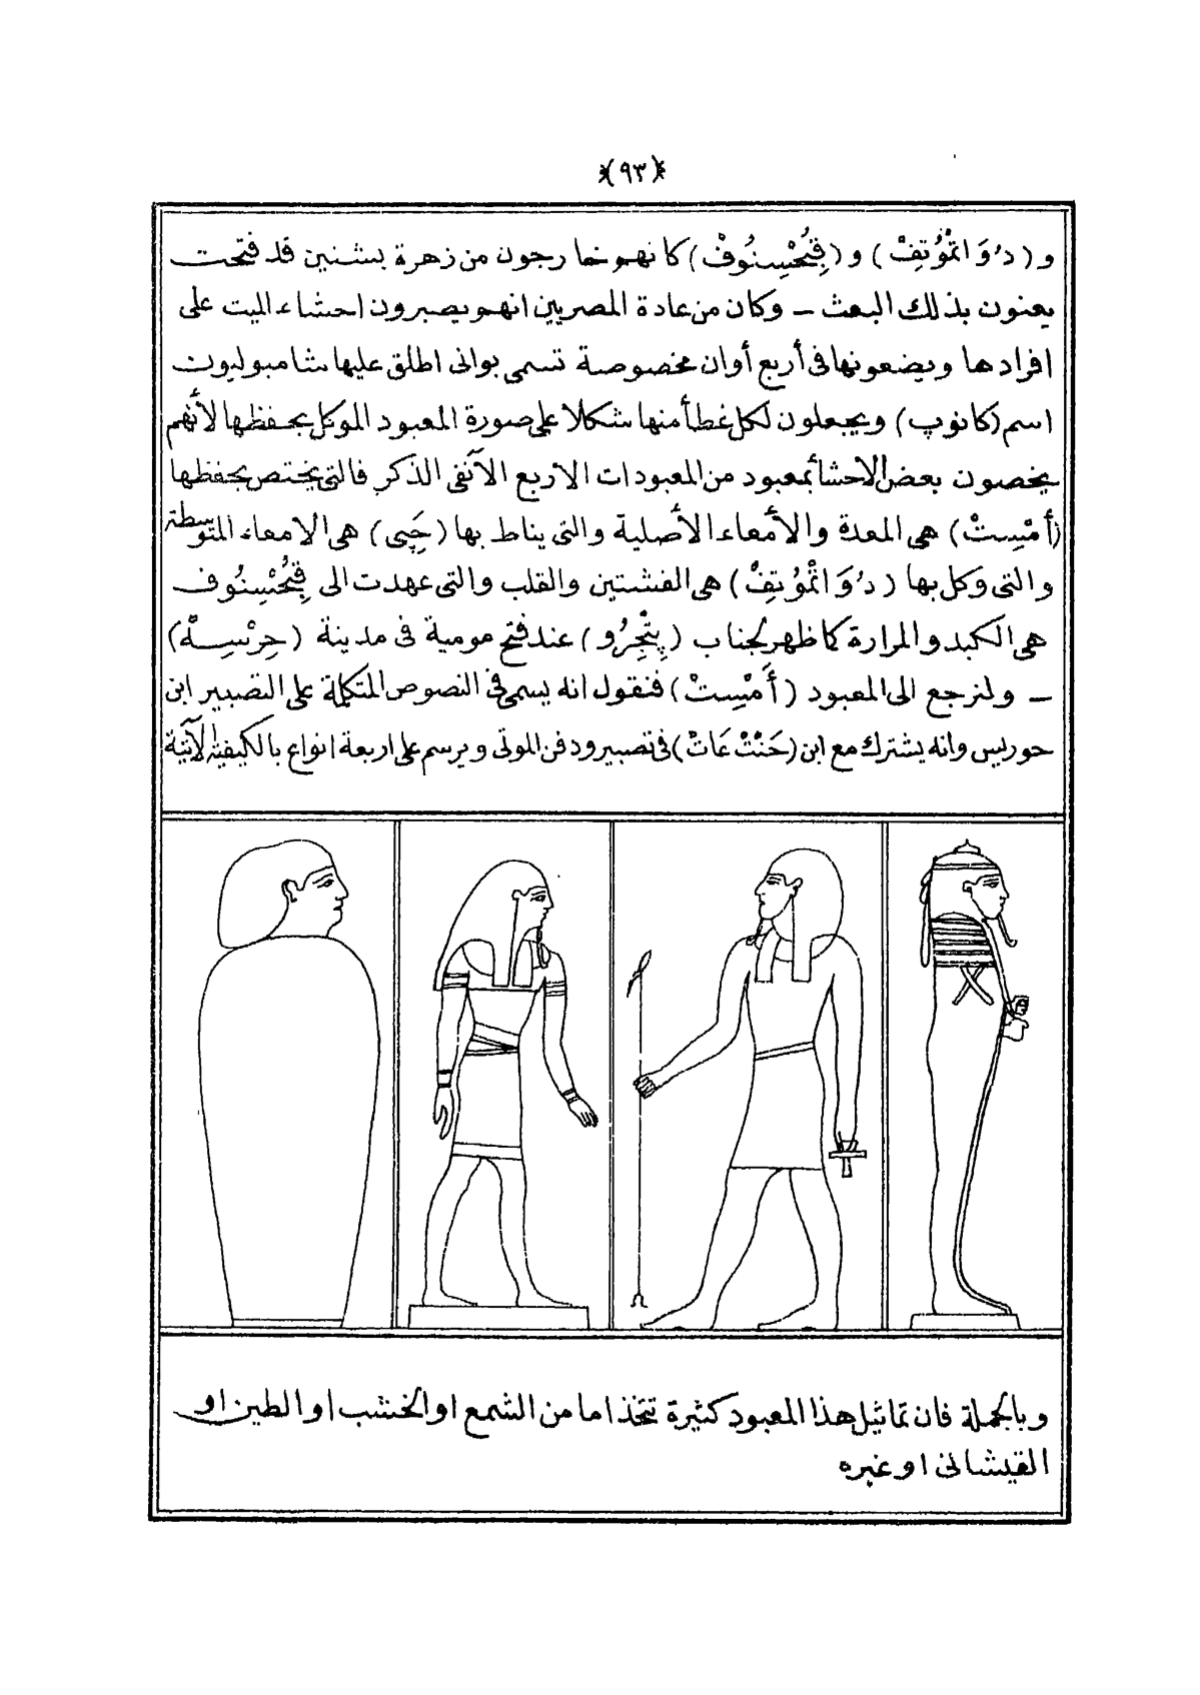 ﴿٩٣﴾
و (دُوَ اتْمُوتِفْ) و (قِبْحُسِنُوفْ) كانهم خارجون من زهرة بشنين قد فتحت
يعنون بذلك البعث ــ وكان من عادة المصريين انهم يصبرون احشاء الميت على
افرادها ويضعونها فى أربع أوان مخصوصة تسمى بوانى اطلق عليها شامبوليون
اسم (كانوپ) ويجعلون لكل غطأ منها شكلا على صورة المعبود الموكل بحفظها لأنهم
يخصون بعض الاحشأ بمعبود من المعبودات الاربع الآنفى الذكر فالتى يختص بحفظها
(أمْسِتْ) هى المعدة والأمعاء الأصلية والتى يناط بها (حَپِى) هى الامعاء المتوسطة
والتى وكل بها (دُوَ اتْمُوتِفْ) هى الفشتين والقلب والتى عهدت الى قِبْحُسِنُوف
هى الكبد والمرارة كما ظهر لجناب (پِتْجِرُو) عند فتح مومية فى مدينة (جِرْسِهْ)
ــ ولنرجع الى المعبود (أَمْسِتْ) فنقول انه يسمى فى النصوص المتكلمة على التصبير ابن
حوريس وانه يشترك مع ابن (خَنْتْ عَاتْ) فى تصبير ودفن الموتى ويرسم على اربعة انواع بالكيفية الآتية
وبالجملة فان تماثيل هذا المعبود كثيرة تتخذ اما من الشمع او الخشب او الطين او
القيشانى او غيره